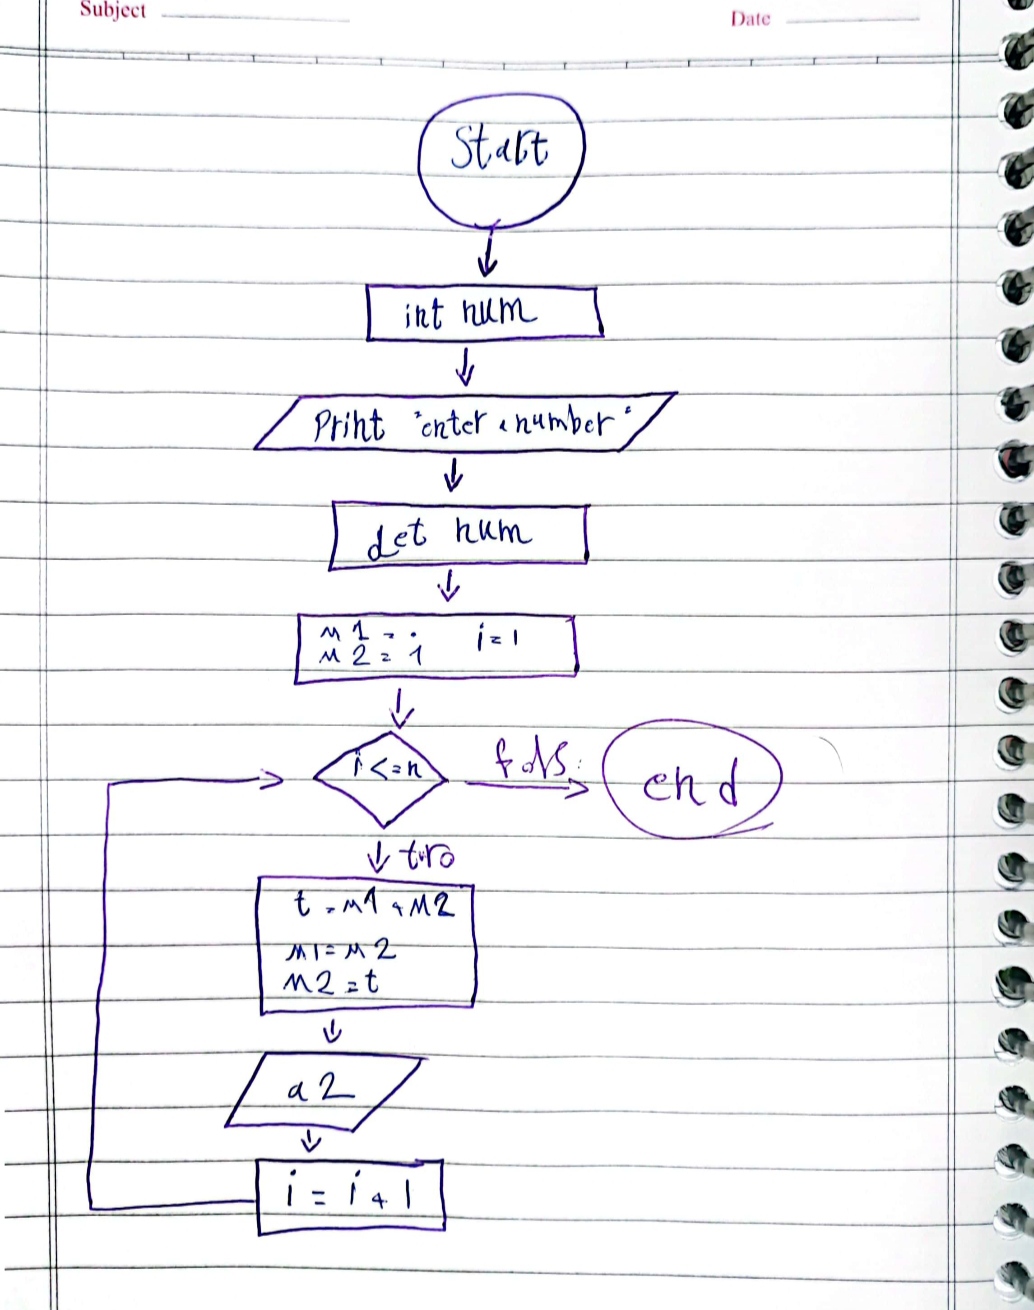 Subject
Date
Start
int num
Print "enter a number"
det num
n1 = . i=1
n2 = 1
i<=n
fals:
end
tro
t = n1 + n2
n1 = n2
n2 = t
a2
i = i + 1